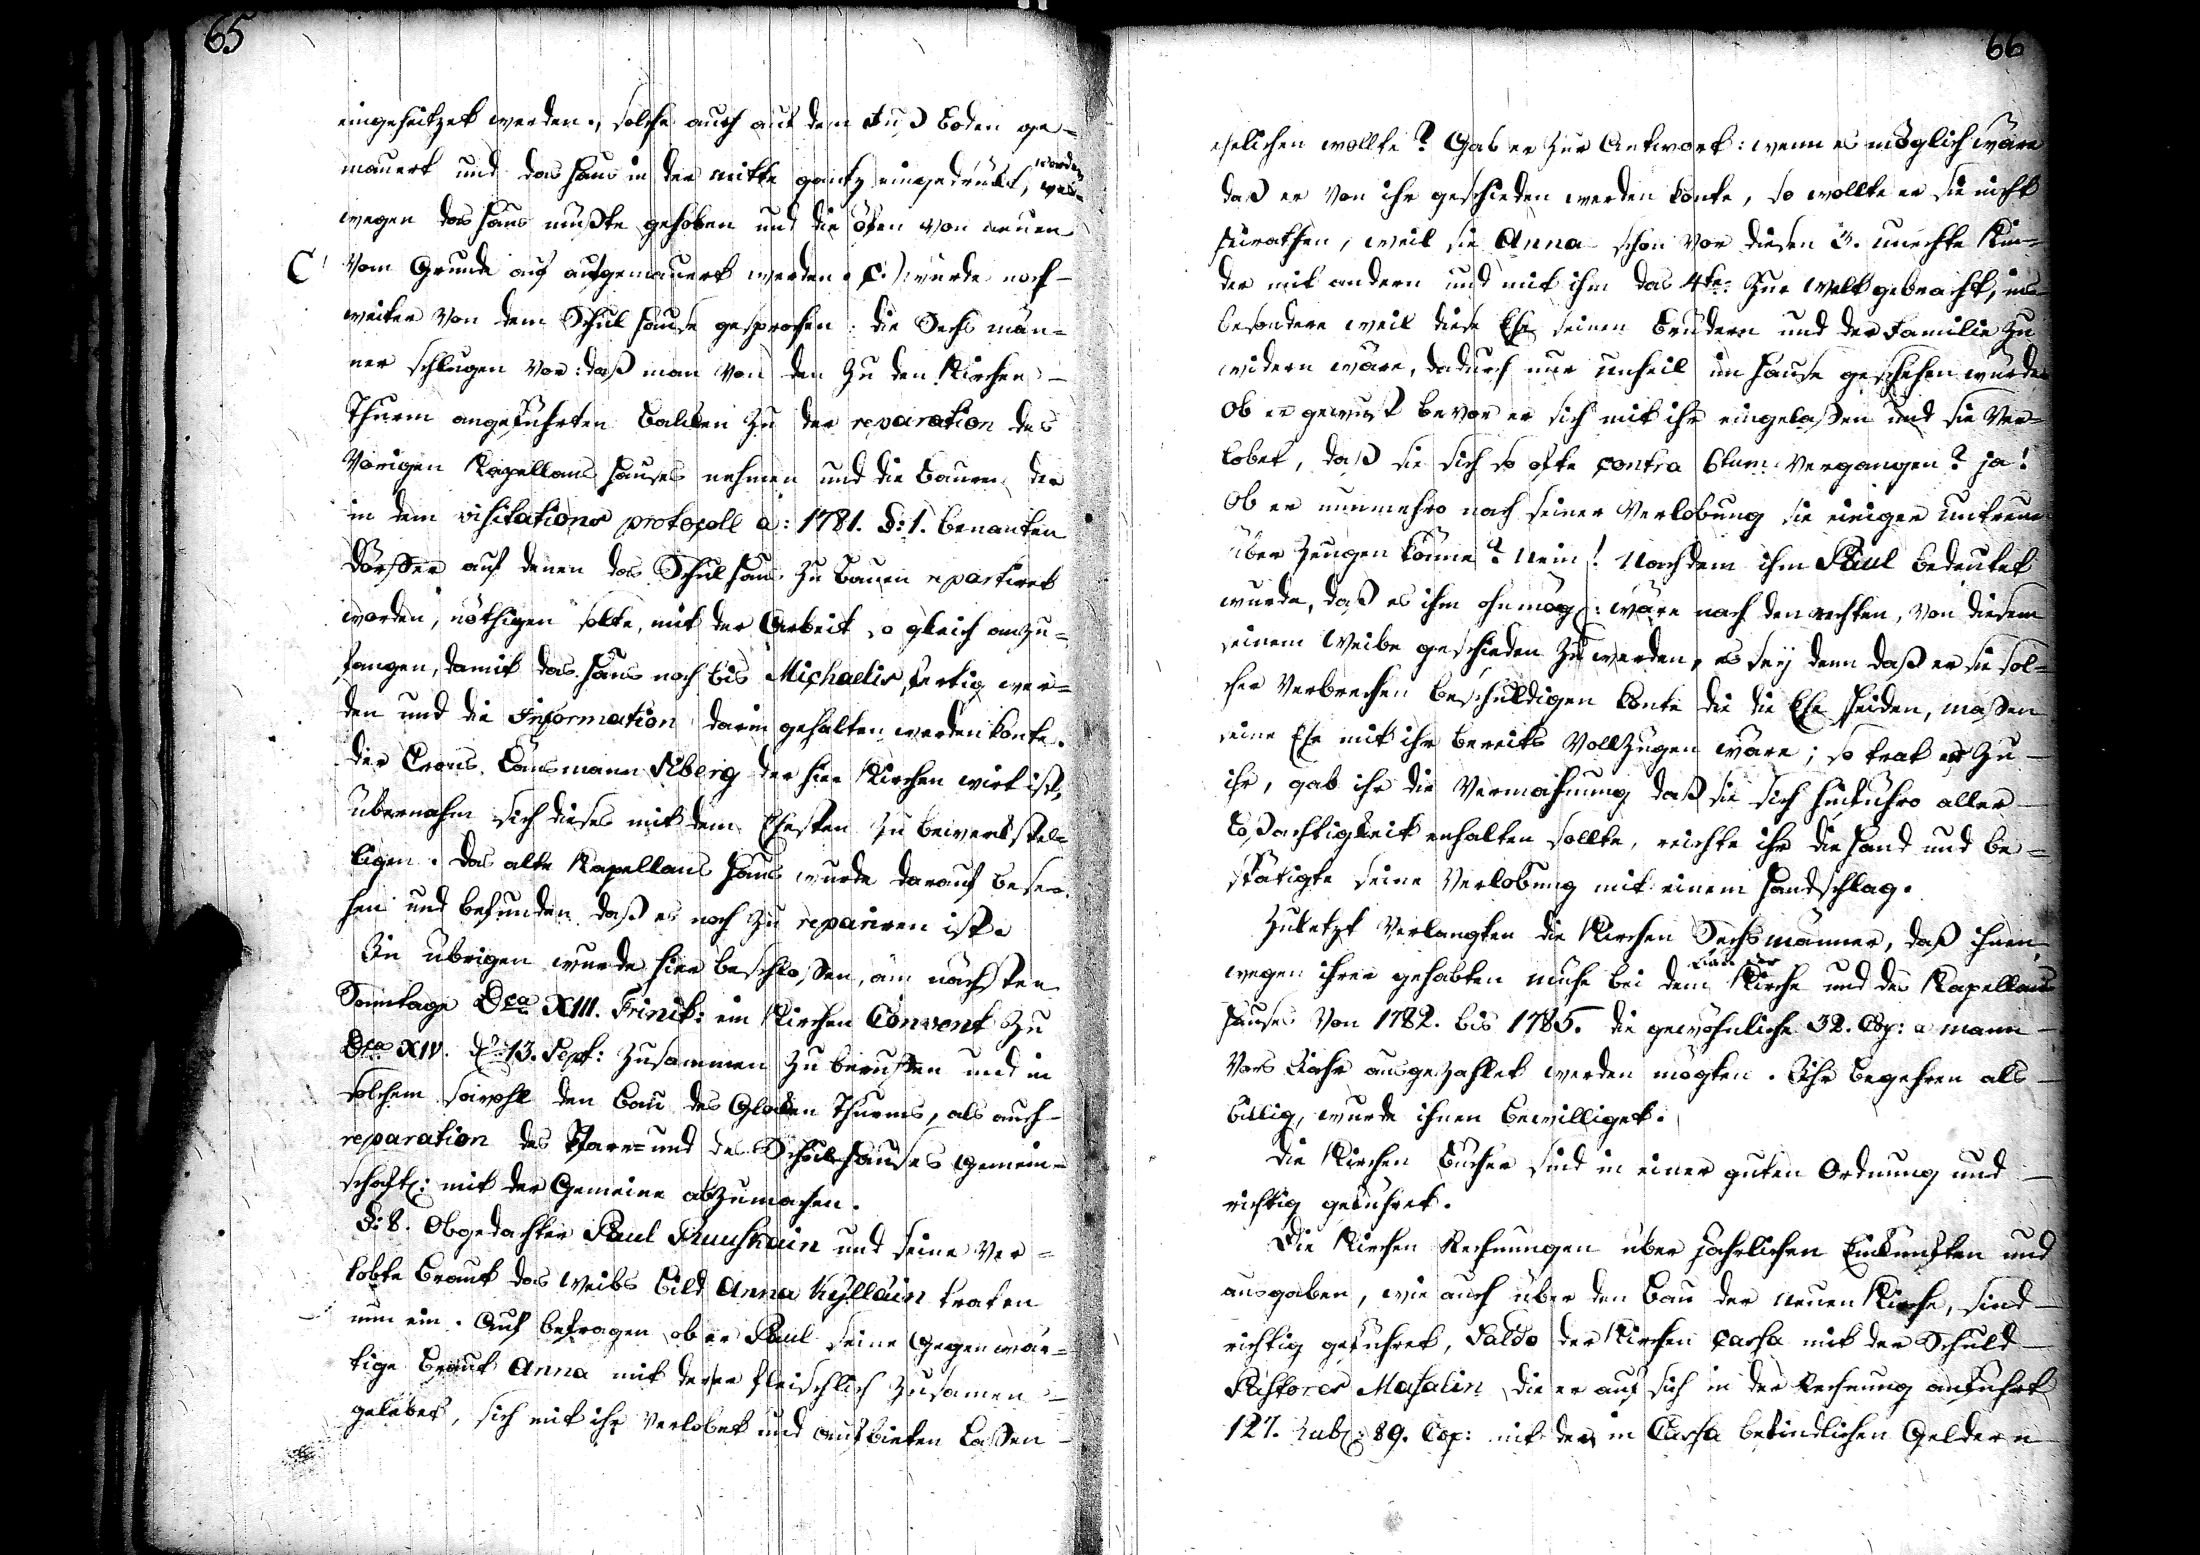 65
eingeheitzet werden, solche auch auf dem Fuß boden ge-
mauert und das Haus in der mitte gantz eingedrückt, worden wes-
wegen das Haus müßte gehoben und die öfen von neuen
C vom Grunde auf aufgemauert werden. C.) wurde noch-
weiter von dem Schul hause gesprochen: die Sechs män-
ner schlugen vor: daß man von den zu den Kirchen-
Thurm angeführten balken zu der reparation des
Vorigen Kapellans hauses nehmen und die bauren der
in dem visitations protocoll a: 1781. §: 1. benanten
dörffer auf denen das Schulhaus zu bauen repartiret
worden, nöthigen solte, mit der Arbeit so gleich anzu-
fangen, damit das Haus noch bis Michaelis fertig wer-
den und die Information darin gehalten werden konte.
der Crons Länsmann Siberg der hier Kirchen wirt ist,
übernahm sich dieses mit dem Ehesten zu bewerkstel-
ligen. Das alte Kapellans Haus wurde darauf bese-
hen und befunden daß es noch zu repariren ist.
Im übrigen wurde hier beschloßen, am nächsten
Sonntage Dca XIII. Trinit: ein Kirchen Convent zu
Dca XIV. d. 13. Sept: zusammen zu beruffen und in
solchem sowohl den bau des Glocken Thurms, als auch-
reparation des Pfarr- und des Schulhauses gemein-
schaftl: mit der Gemeine abzumachen.
§: 8. Obgedachter Paul Kuuskain und seine Ver-
lobte braut das Weibs bild Anna Kylläin traten
nun ein. Auf befragen ob er Paul seine Gegenwär-
tige braut Anna mit derer fleischlich zusamen-
gelebet, sich mit ihr verlobet und aufbieten laßen-
66
ehelichen wollte? Gab er zur Antwort: wenn es möglich wäre
daß er von ihr geschieden werden konte, so wollte er sie nicht
heirathen, weil sie Anna schon vor diesen 3. unechte Kin-
der mit andern und mit ihm das 4te: zur Welt gebracht, ins-
besondere weil diese Ehe seinen brüdern und der Familie zu
widern wäre, dadurch nur unheil im hause geschehen würde
Ob er gewust bevor er sich mit ihr eingelaßen und sie Ver-
lobet, daß sie sich so ofte contra 6tum vergangen? ja!
Ob er nunmehro nach seiner Verlobung sie einiger untreue
überzeugen könne? Nein! Nachdem ihm Paul bedeutet
wurde, daß es ihm ohnmögl: wäre nach den rechten, von diesem
seinem Weibe geschieden zu werden, es sey denn daß er sie sol-
cher Verbrechen beschuldigen konte die die Ehe heiden, maßen
seine Ehe mit ihr bereits vollzugen wäre; so trat er zu-
ihr, gab ihr die Vermahnung daß sie sich hinführo aller-
boßhaftigkeit enhalten sollte, reichte ihr die Hand und be-
stätigte seine Verlobung mit einem Handschlag.
Zuletzt verlangten die Kirchen Sechsmänner, daß ihnen
wegen ihrer gehabten mühe bei dem bau der Kirche und des Kapellans
hauses von 1782. bis 1785. die gewöhnliche 32. Cop: a mann-
Vors Jahr ausgezahlet werden mögten. Ihr begehren als-
billig, wurde ihnen bewilliget.
Die Kirchen bücher sind in einer guten Ordnung und-
richtig geführet.
Die Kirchen Rechnungen über jährlichen Einkünften und
ausgaben, wie auch über den bau der neuen Kirche, sind-
richtig geführet, Saldo der Kirchen Cassa mit der Schuld-
Pastores Masalin die er auf sich in der Rechnung anführt
127. Rubl: 89. Cop: mit der in Cassa befindlichen Geldern